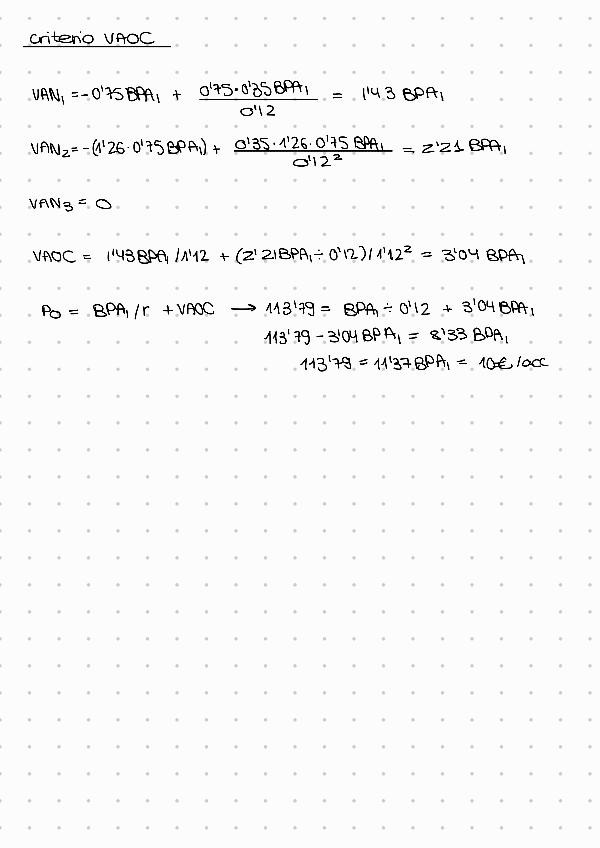 criterio VAOC
VAN₁ = -0'75BPA₁ + 0'75·0'35BPA₁ / 0'12 = 1'43 BPA₁
VAN₂ = -(1'26·0'75BPA₁) + 0'35·1'26·0'75 BPA₁ / 0'12² = 2'21 BPA₁
VAN₃ = 0
VAOC = 1'43BPA₁/1'12 + (2'21BPA₁÷0'12)/1'12² = 3'04 BPA₁
P₀ = BPA₁/r + VAOC → 113'79 = BPA₁ ÷ 0'12 + 3'04BPA₁
113'79 - 3'04BPA₁ = 8'33 BPA₁
113'79 = 11'37BPA₁ = 10€/acc